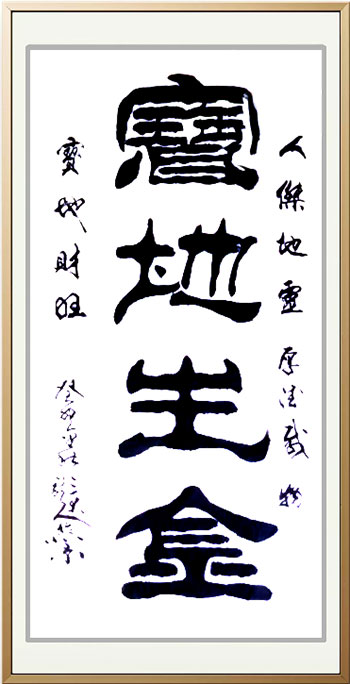 人傑地靈 厚德載物
寶地生金
寶地財旺